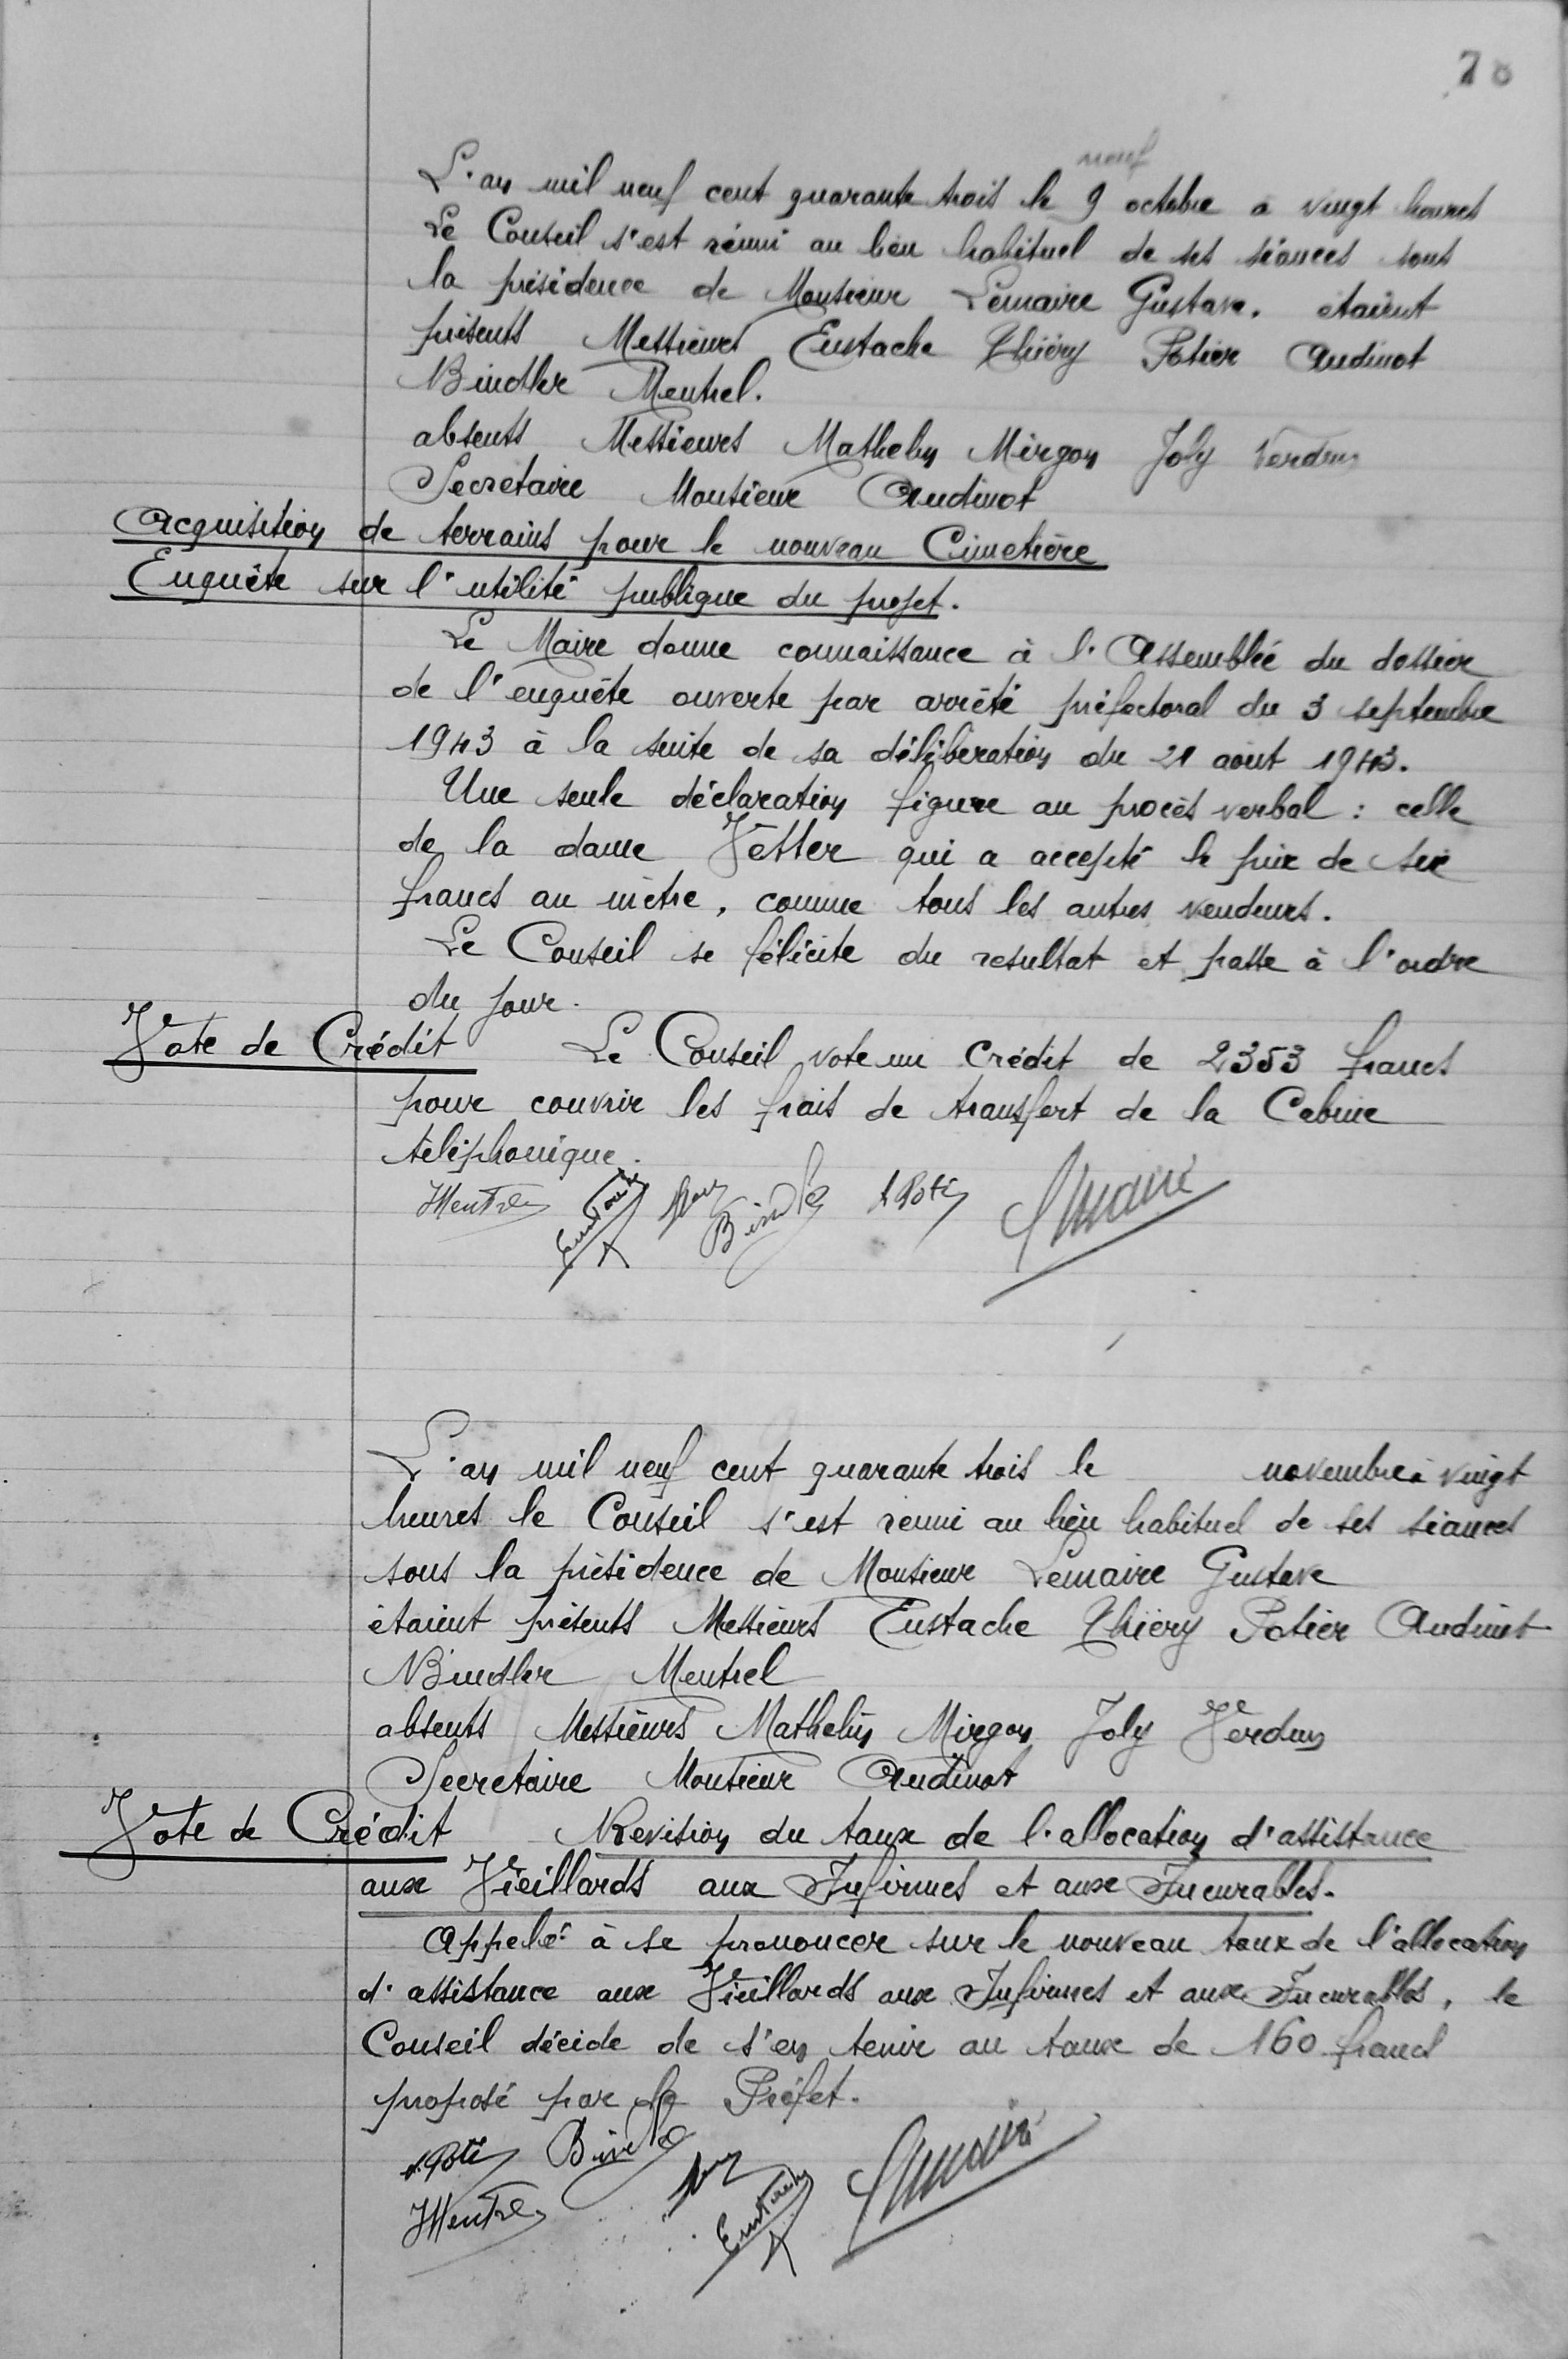 neuf
L'an mil neuf cent quarante trois le 9 octobre a vingt heures
Le Conseil s'est réuni au lieu habituel de ses séances sous
la présidence de Monsieur Lemaire Gustave. étaient
présents Messieurs Eustache Thiéry Potier Audinot
Bindler Mentrel.
absents Messieurs Mathelin Mirgon Joly Verdun
Secretaire Monsieur Audinot
Acquisition de terrains pour le nouveau Cimetière
Enquête sur l'utilité publique du projet.
Le Maire donne connaissance à l'Assemblée du dossier
de l'enquête ouverte par arrêté préfectoral du 3 septembre
1943 à la suite de sa délibération du 21 août 1943.
Une seule déclaration figure au procès verbal : celle
de la dame Vetter qui a accepté le prix de six
francs au mètre, comme tous les autres vendeurs.
Le Conseil se félicite du resultat et passe à l'ordre
du jour.
Vote de Crédit Le Conseil vote un Crédit de 2353 francs
pour couvrir les frais de transfert de la Cabine
téléphonique.
Mentrel Eustache Bindler A Potier Lemaire
L'an mil neuf cent quarante trois le novembre à vingt
heures le Conseil s'est réuni au lieu habituel de ses séances
sous la présidence de Monsieur Lemaire Gustave
étaient présents Messieurs Eustache Thiéry Potier Audinot
Bindler Mentrel
absents Messieurs Mathelin Mirgon Joly Verdun
Secretaire Monsieur Audinot
Vote de Crédit Revision du taux de l'allocation d'assistance
aux Vieillards aux Infirmes et aux Incurables.
Appelé à se prononcer sur le nouveau taux de l'allocation
d'assistance aux Vieillards aux Infirmes et aux Incurables, le
Conseil décide de s'en tenir au taux de 160 francs
proposé par le Préfet.
A. Potier Bindler
Mentrel Eustache Lemaire